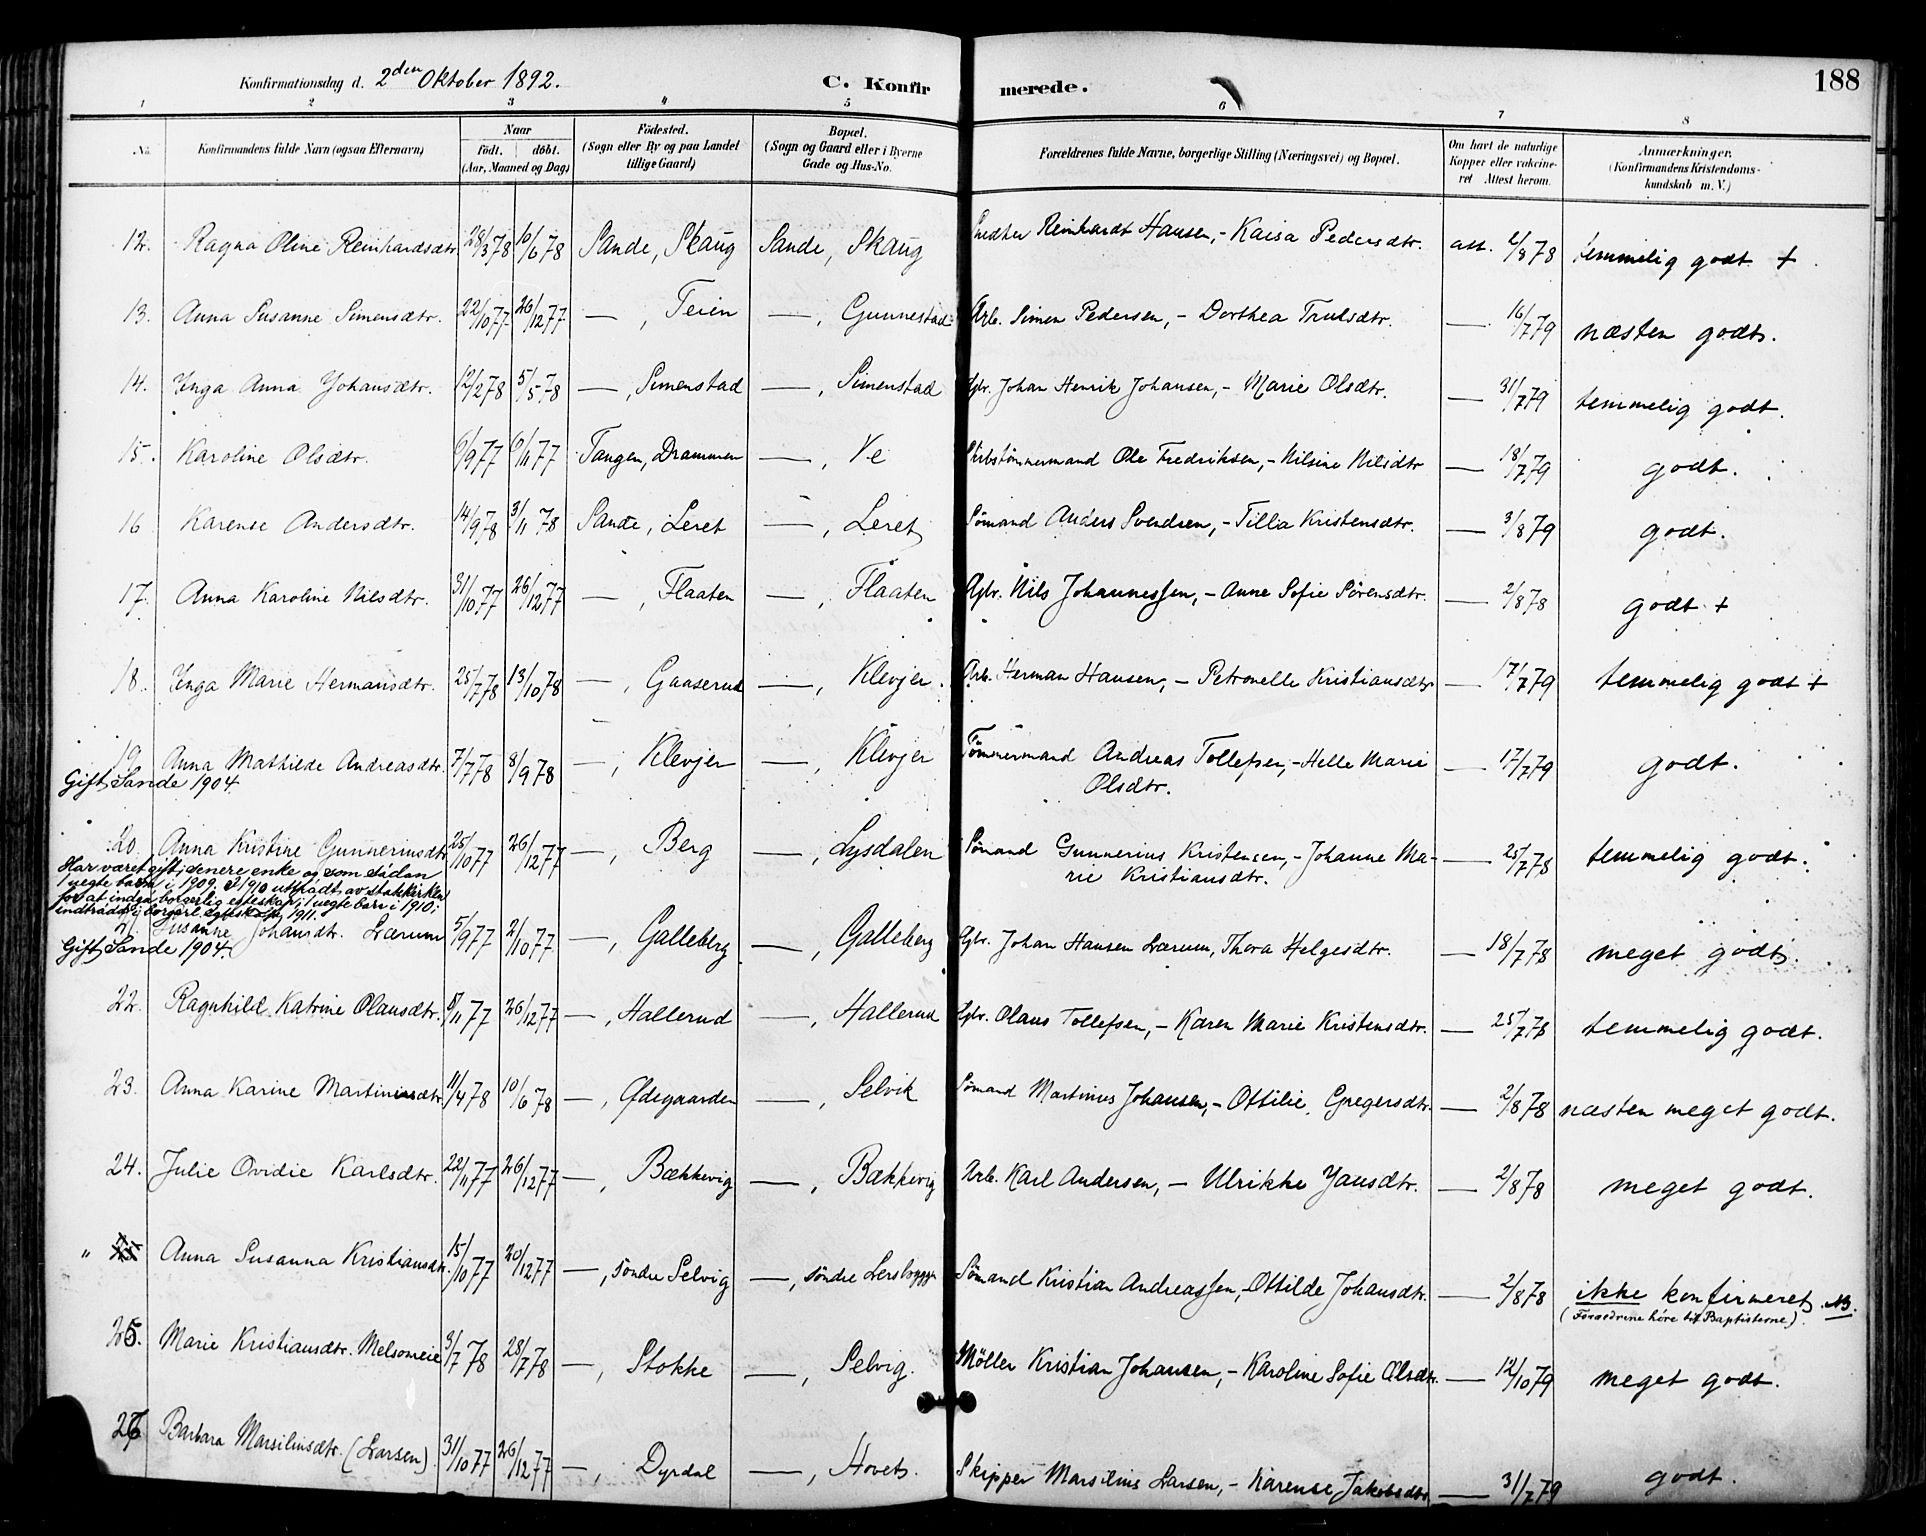 Konfirmationsdag d. 2den Oktober 1892. C. Konfirmerede. 188
1 2 3 4 5 6 7 8
No. Konfirmandens fulde Navn (ogsaa Efternavn) Naar født. døbt. (Aar, Maaned og Dag) Fødested. (Sogn eller By og paa Landet tillige Gaard) Bopæl. (Sogn og Gaard eller i Byerne Gade og Hus-No. Forældrenes fulde Navne, borgerlige Stilling (Næringsvei) og Bopæl. Om havt de naturlige Kopper eller vakcineret Attest herom. Anmærkninger. (Konfirmandens Kristendomskundskab m. V.)
12. Ragna Oline Reinhardsdtr. 28/3 78 10/6 78 Sande, Skaug Sande, Skaug Reinhardt Hansen, - Kaisa Pedersdtr. att. 2/8 78 temmelig godt +
13. Anna Susanne Simensdtr. 22/10 77 26/12 77 — , Teien — , Gunnestad Arb. Simen Pedersen, - Dorthea Trulsdtr. — 16/7 79 næsten godt.
14. Inga Anna Johansdtr. 12/2 78 5/5 78 — , Simenstad — , Simenstad Gbr. Johan Henrik Johansen, - Marie Olsdtr. — 31/7 79 temmelig godt.
15. Karoline Olsdtr. 6/9 77 6/11 77 Tangen, Drammen — , Ve Skibstømmermand Ole Fredriksen, - Nilsine Nilsdtr — 18/7 79 godt.
16 Karense Andersdtr. 14/9 78 3/11 78 Sande, Leret — , Leret Sømand Anders Svendsen, - Tilla Kristensdtr. — 3/8 79 godt.
17. Anna Karoline Nilsdtr. 31/10 77 26/12 77 — , Flaaten — , Flaaten Gbr. Nils Johannessen, - Anne Sofie Sørensdtr. — 2/8 78 godt +
18. Inga Marie Hermansdtr. 25/7 78 13/10 78 — , Gaaserud — , Klevjer. Arb. Herman Hansen, - Petronelle Kristiansdtr — 17/7 79 temmelig godt +
19. Anna Mathilde Andreasdtr. 7/7 78 8/9 78 — , Klevjer — , Klevjer Tømmermand Andreas Tollefsen, - Helle Marie Olsdtr. — 17/7 79 godt.
Gift, Sande 1904.
20. Anna Kristine Gunneriusdtr 25/10 77 26/12 77 — , Berg — , Lysdalen Sømand Gunnerius Kristensen, - Johanne Marie Kristiansdtr. — 25/7 78 temmelig godt.
Har været gift; senere enke og som sådan
1 uegte barn i 1909. I 1910 utträdt av statskirken
for at indgå borgerlig egteskap; 1 uegte barn i 1910;
indtrådt i borgerl. egteskap 1911.
21. Susanne Johansdtr. Lærum 5/9 77 2/10 77 — , Galleberg — , Galleberg Gbr. Johan Hansen Lærum, Thora Helgesdtr. — 18/7 78 meget godt.
Gift, Sande 1904.
22. Ragnhild Katrine Olausdtr. 8/11 77 26/12 77 — , Hallerud — , Hallerud Gbr. Olaus Tollefsen, - Karen Marie Kristensdtr. — 25/7 78 temmelig godt.
23. Anna Karine Martiniusdtr 11/4 78 10/6 78 — , Ødegaarden — , Selvik Sømand Martinius Johansen, - Ottilie Gregersdtr. — 2/8 78 næsten meget godt.
24. Julie Ovidie Karlsdtr. 22/11 77 26/12 77 — , Bækkevig — , Bækkevig Arb. Karl Andersen, - Ulrikke Jansdtr. — 2/8 78 meget godt.
" Anna Susanna Kristiansdtr. 15/10 77 20/12 77 — , søndre Selvig — , søndre Lersbryggen Sømand Kristian Andreassen, - Ottilde Johansdtr. — 2/8 78 ikke konfirmeret. NB.
(Forældrene høre til Baptisterne).
25. Marie Kristiansdtr. Melsomeie 3/7 78 28/7 78 — , Stokke — , Selvig. Møller Kristian Johansen, - Karoline Sofie Olsdtr. — 12/10 79 meget godt.
26 Barbara Marsiliusdtr. (Larsen) 31/10 77 26/12 77 — , Dyrdal — , Hovet. Skipper Marsilius Larsen, - Karense Jakobsdtr — 31/7 79 godt.